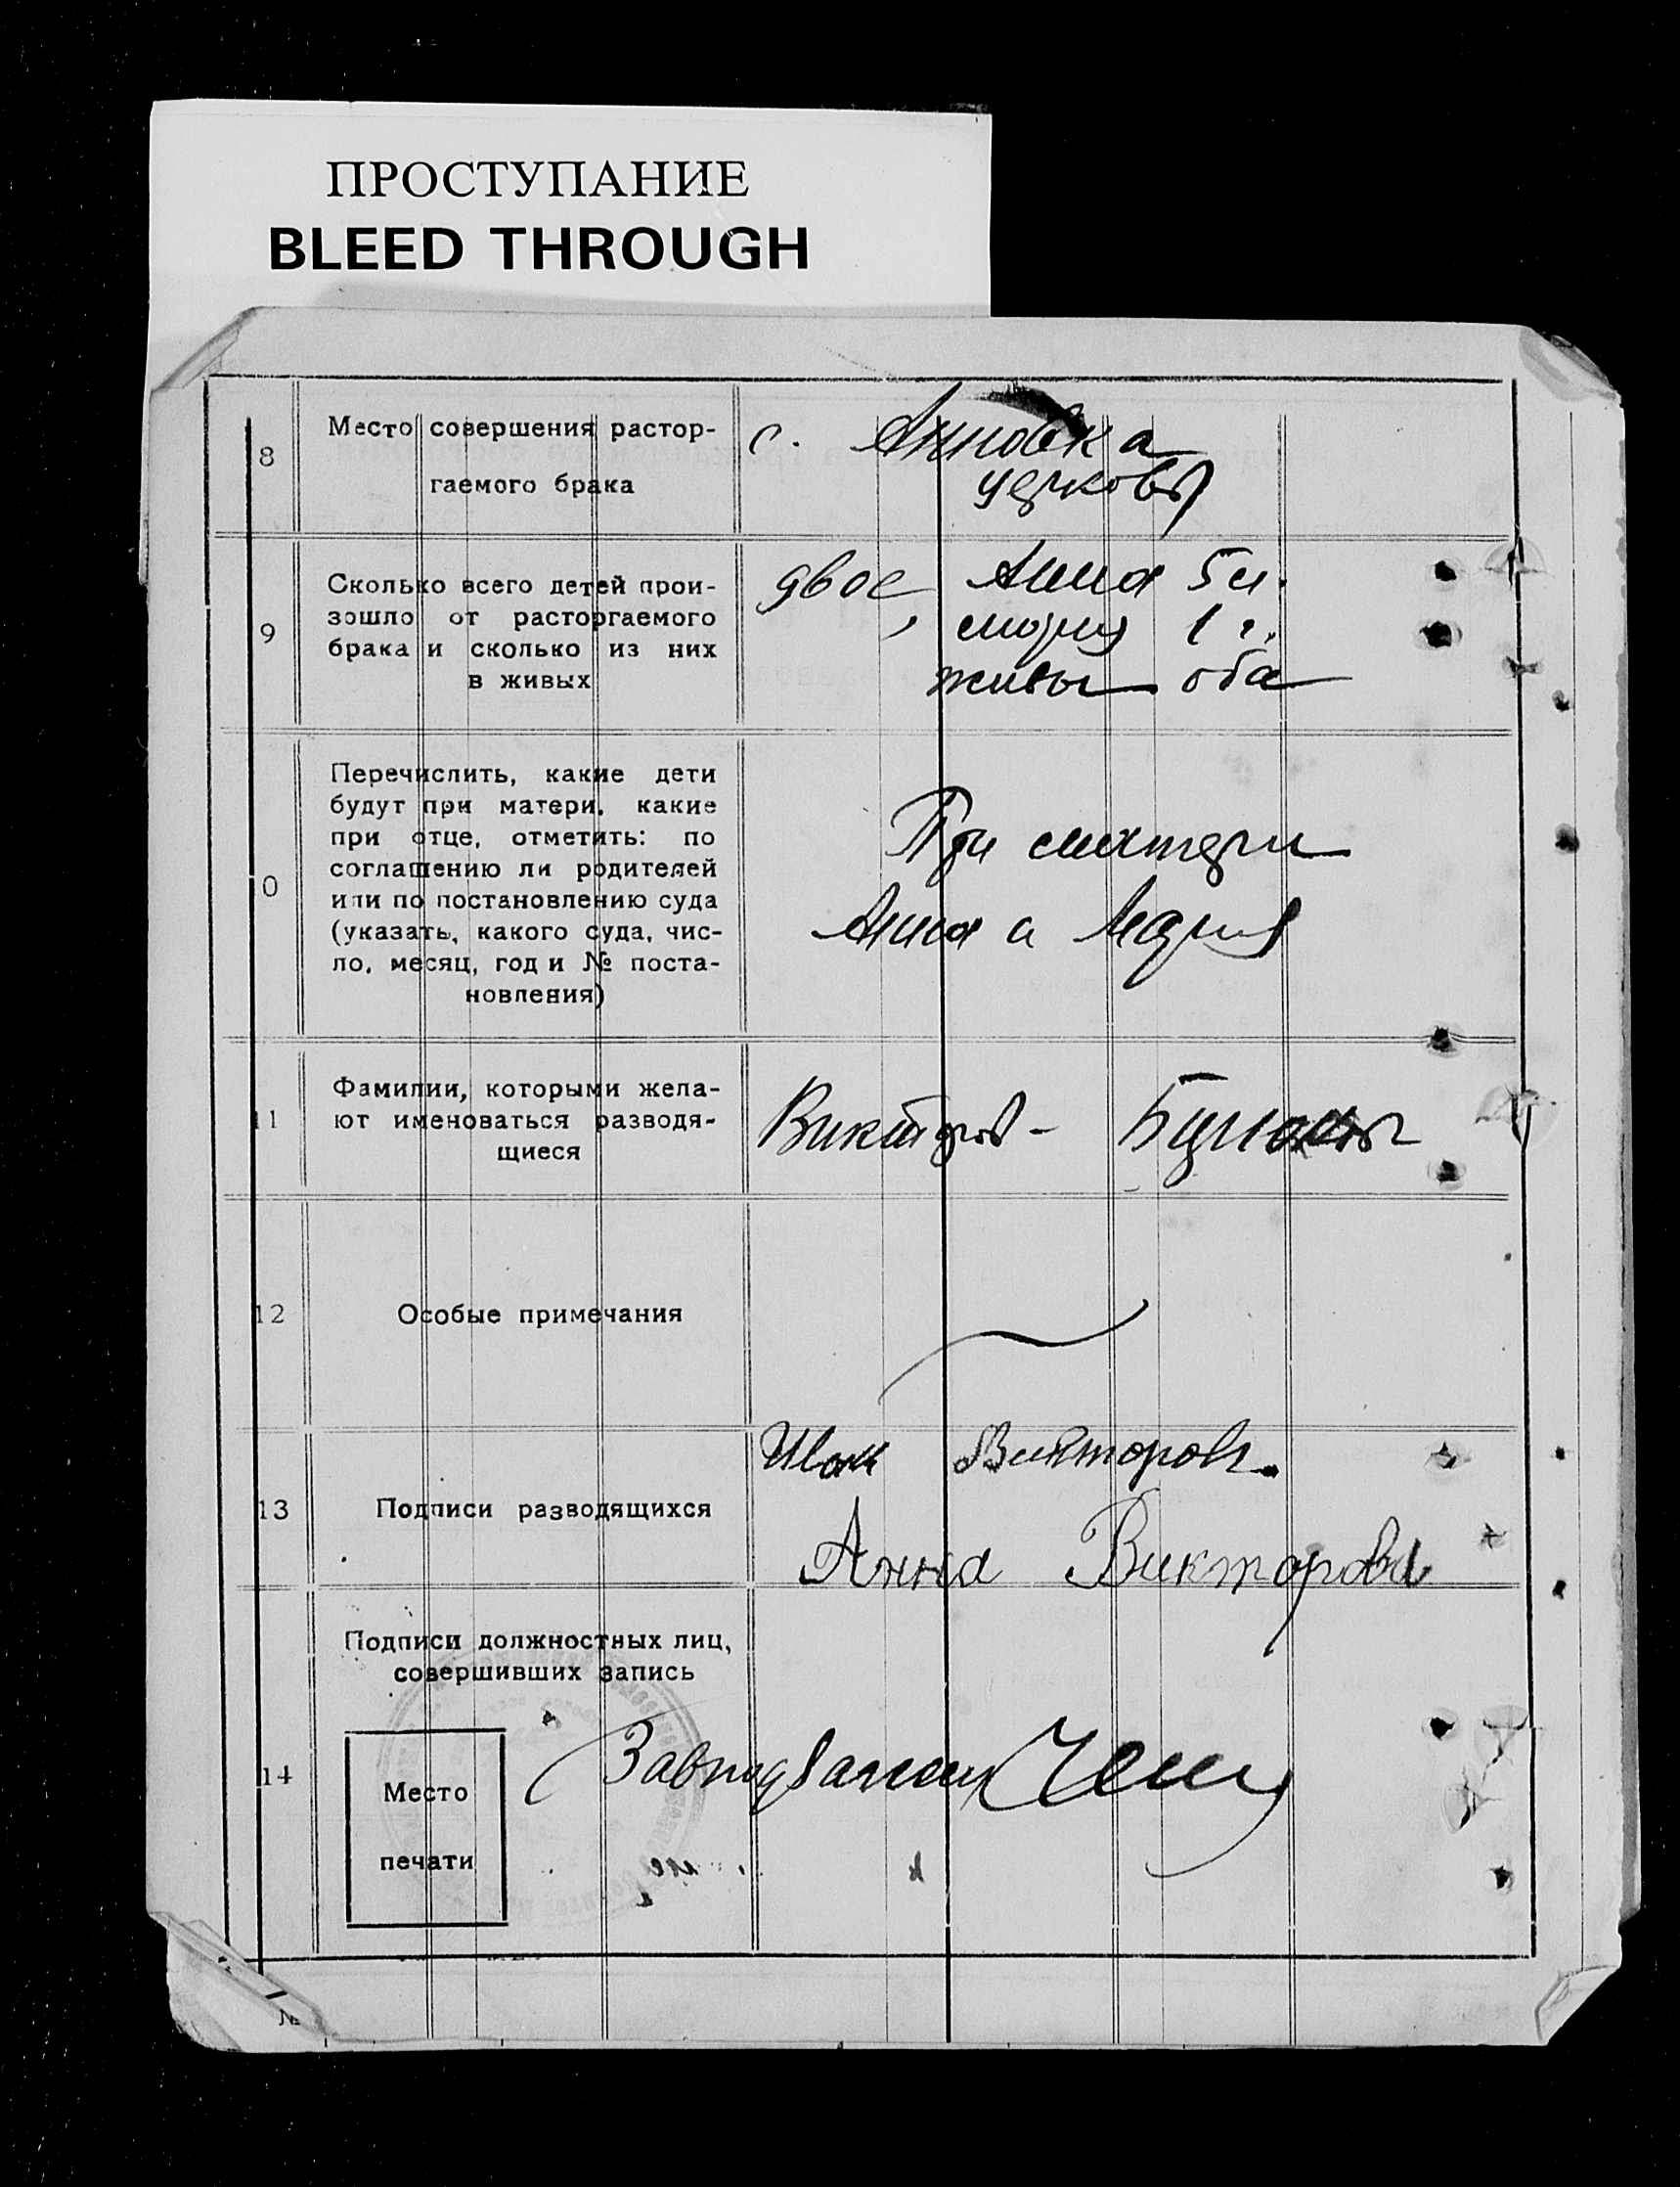 ПРОСТУПАНИЕ
BLEED THROUGH
8
Место совершения растор-
гаемого брака
с. Анновка
церковь
9
Сколько всего детей прои-
зошло от расторгаемого
брака и сколько из них
в живых
двое, Анна 5 л.
Мария 1 г.
живы оба
0
Перечислить, какие дети
будут при матери, какие
при отце, отметить: по
соглашению ли родителей
или по постановлению суда
(указать, какого суда, чис-
ло, месяц, год и № поста-
новления)
При матери
Анна и Мария
11
Фамилии, которыми жела-
ют именоваться разводя-
щиеся
Викторов -
12
Особые примечания
13
Подписи разводящихся
Иван Викторов.
Анна Викторова
14
Подписи должностных лиц,
совершивших запись
Место
печати
№